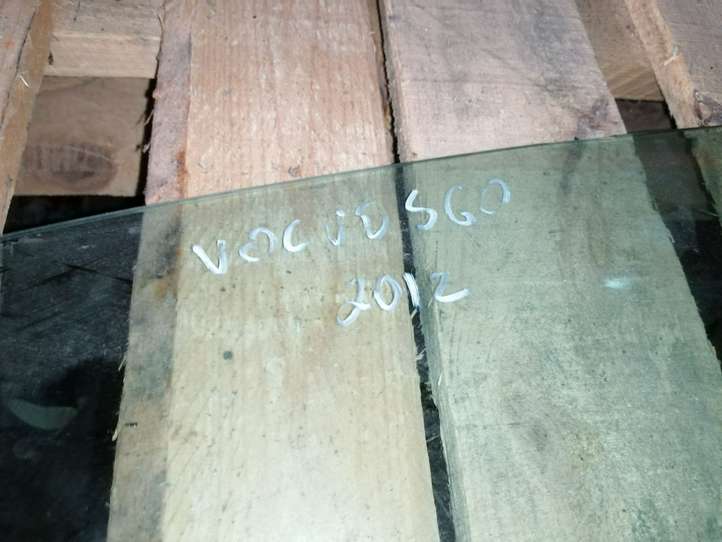 VOLVO S60
2012